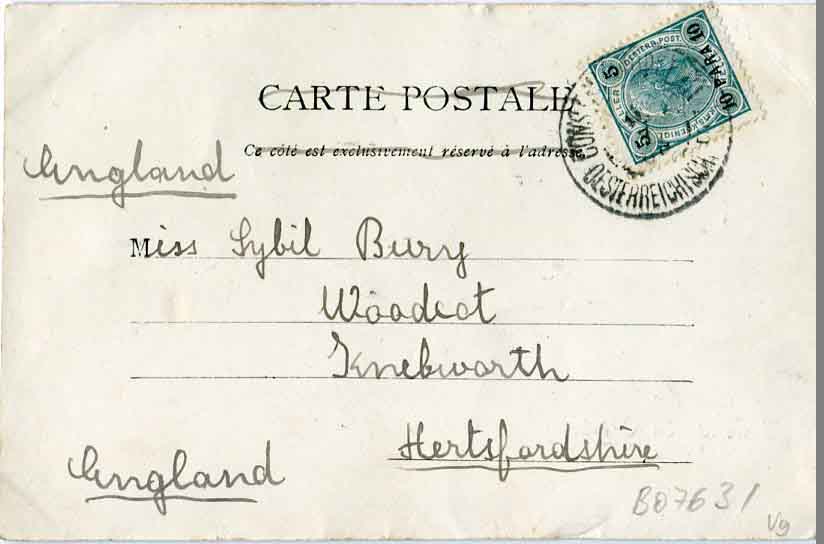 CARTE POSTALE
Ce côté est exclusivement réservé à l'adresse
England
Miss Sybil Bury
Woodcot
Knebworth
Hertsfordshire
England
B07631
Vg
5 OESTERR. POST. 5
10 PARA 10
OESTERREICHISCH